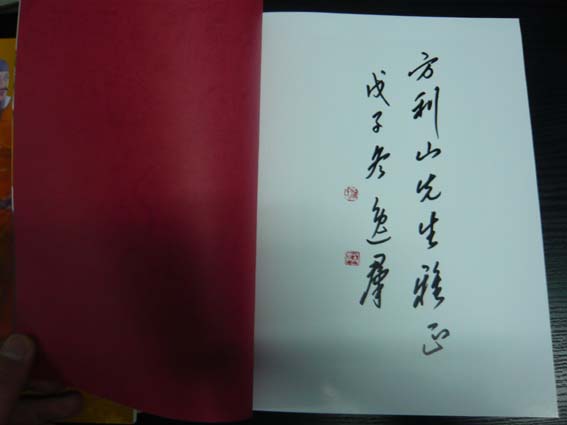 方利山先生雅正
戊子冬 逸群